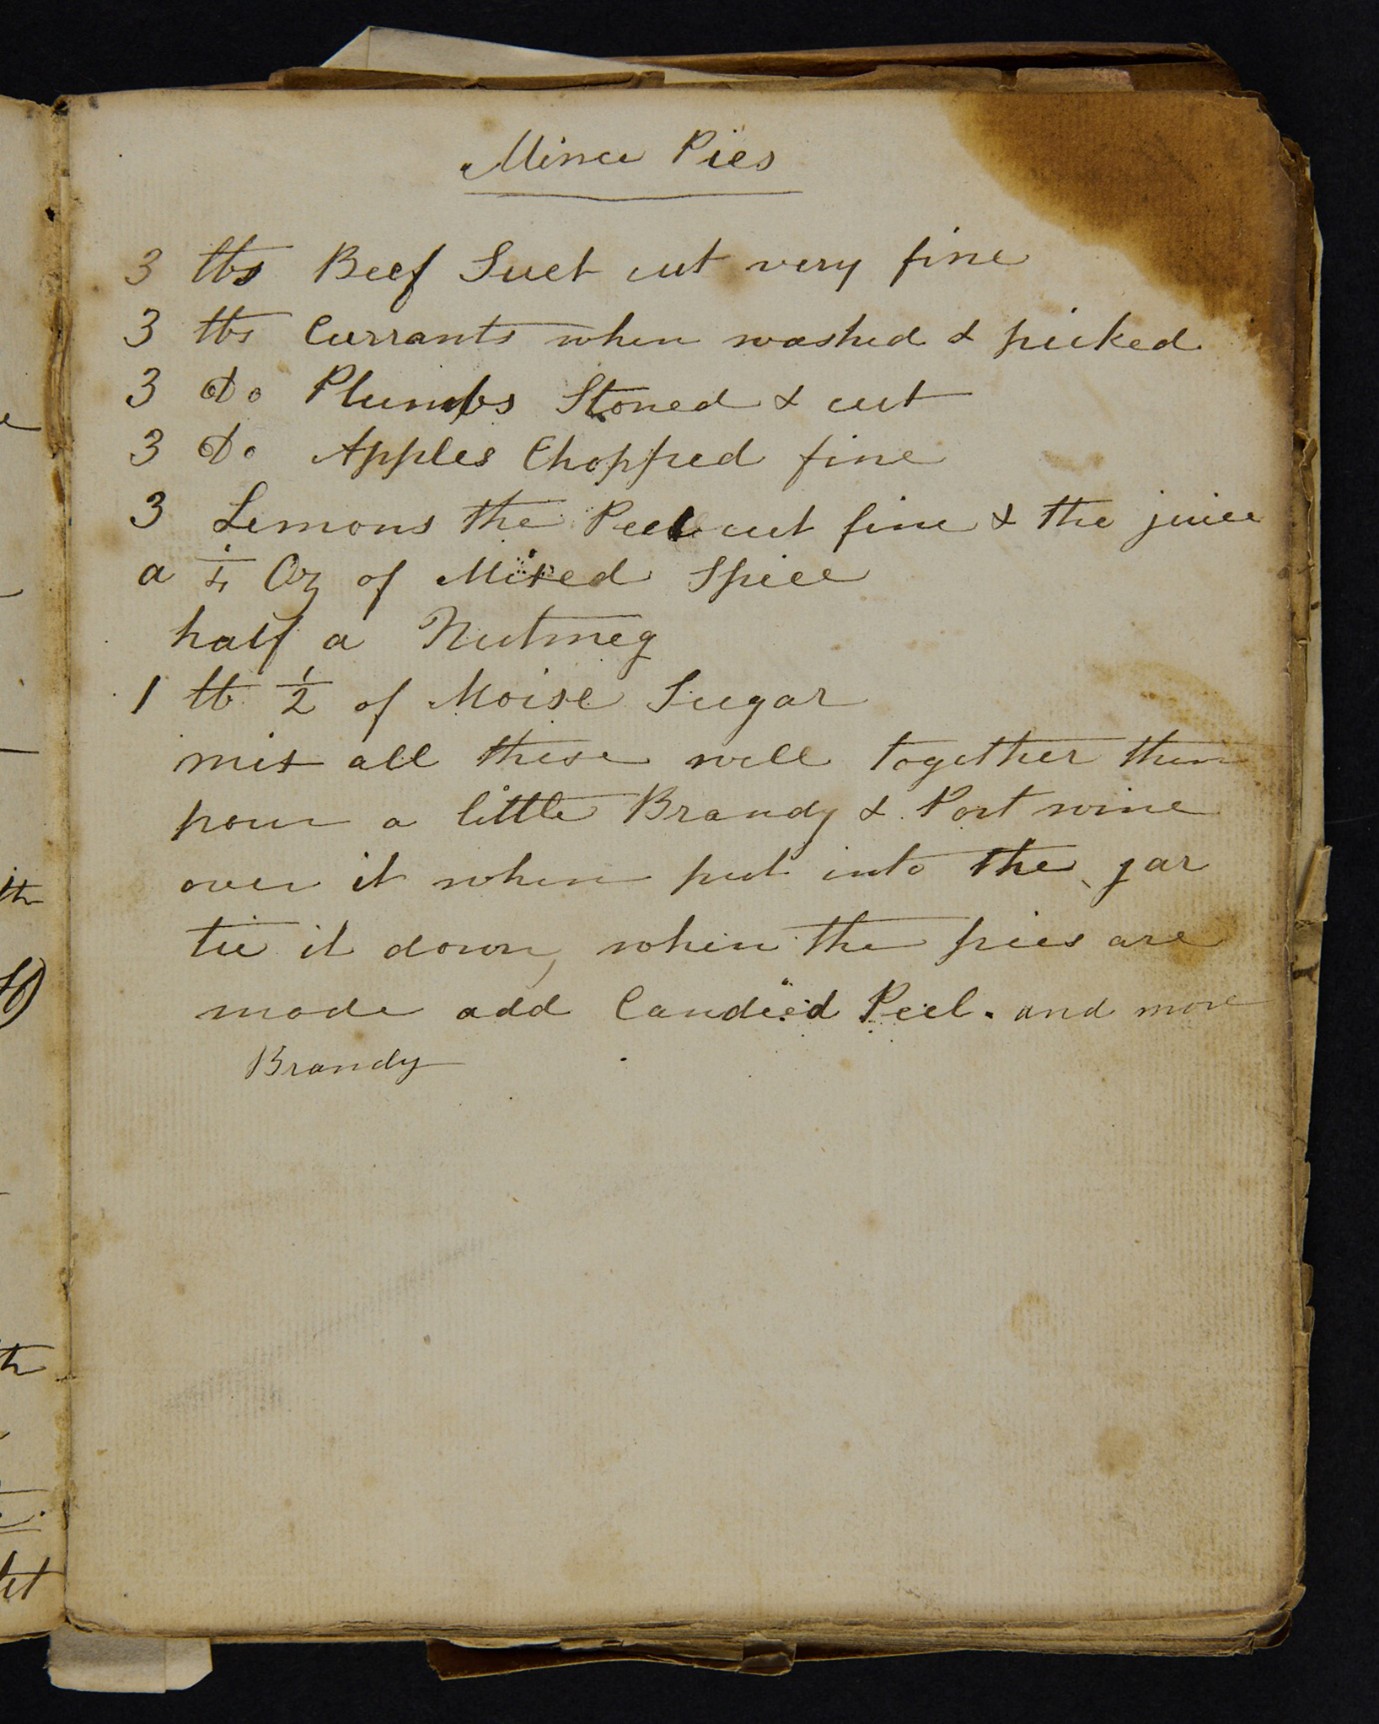 Mince Pies
3 lbs Beef Suet cut very fine
3 lbs Currants when washed & picked
3 Do Plumbs Stoned & cut
3 Do Apples Chopped fine
3 Lemons the Peel cut fine & the juice
a 1/4 Oz of Mixed Spice
half a Nutmeg
1 lb 1/2 of Moise Sugar
mix all these well together then
pour a little Brandy & Port wine
over it when put into the jar
tie it down, when the pies are
made add Candied Peel. and more
Brandy